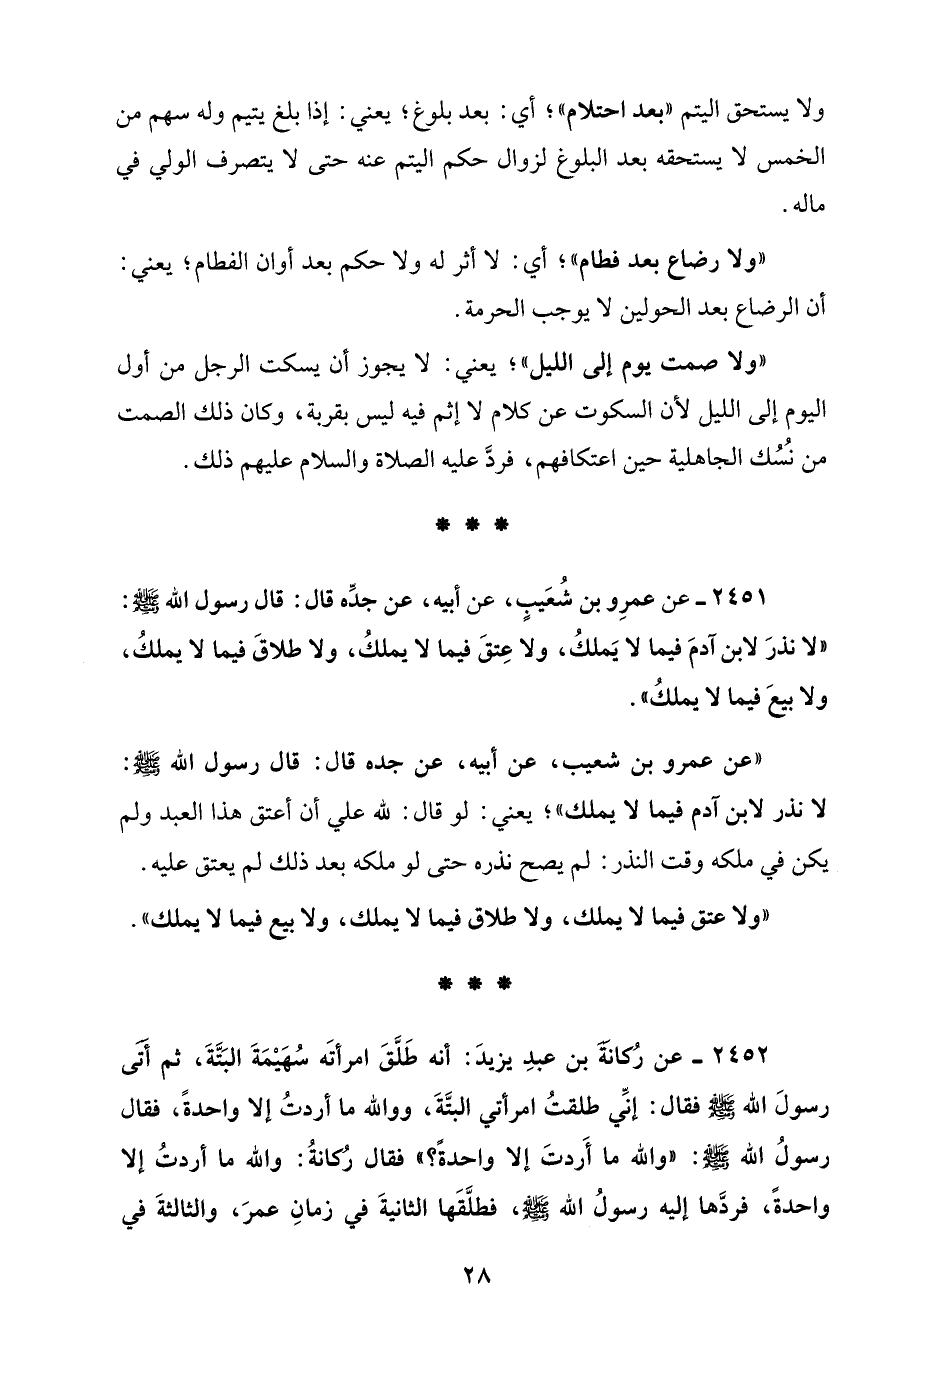 ولا يستحق اليتم «بعد احتلام»؛ أي: بعد بلوغ؛ يعني: إذا بلغ يتيم وله سهم من
الخمس لا يستحقه بعد البلوغ لزوال حكم اليتم عنه حتى لا يتصرف الولي في
ماله.
«ولا رضاع بعد فطام»؛ أي: لا أثر له ولا حكم بعد أوان الفطام؛ يعني:
أن الرضاع بعد الحولين لا يوجب الحرمة.
«ولا صمت يوم إلى الليل»؛ يعني: لا يجوز أن يسكت الرجل من أول
اليوم إلى الليل لأن السكوت عن كلام لا إثم فيه ليس بقربة، وكان ذلك الصمت
من نُسُك الجاهلية حين اعتكافهم، فردَّ عليه الصلاة والسلام عليهم ذلك.
* * *
٢٤٥١ ـ عن عمرِو بن شُعَيبٍ، عن أبيه، عن جدِّه قال: قال رسول الله ﷺ:
«لا نذرَ لابن آدمَ فيما لا يَملكُ، ولا عِتقَ فيما لا يملكُ، ولا طلاقَ فيما لا يملكُ،
ولا بيعَ فيما لا يملكُ».
«عن عمرو بن شعيب، عن أبيه، عن جده قال: قال رسول الله ﷺ:
لا نذر لابن آدم فيما لا يملك»؛ يعني: لو قال: لله علي أن أعتق هذا العبد ولم
يكن في ملكه وقت النذر: لم يصح نذره حتى لو ملكه بعد ذلك لم يعتق عليه.
«ولا عتق فيما لا يملك، ولا طلاق فيما لا يملك، ولا بيع فيما لا يملك».
* * *
٢٤٥٢ ـ عن رُكانةَ بن عبدِ يزيدَ: أنه طَلَّقَ امرأتَه سُهَيْمَةَ البَتَّةَ، ثم أَتَى
رسولَ الله ﷺ فقال: إنِّي طلقتُ امرأتي البتَّةَ، ووالله ما أردتُ إلا واحدةً، فقال
رسولُ الله ﷺ: «والله ما أَردتَ إلا واحدةً؟» فقال رُكانةُ: والله ما أردتُ إلا
واحدةً، فردَّها إليه رسولُ الله ﷺ، فطلَّقَها الثانيةَ في زمانِ عمرَ، والثالثةَ في
٢٨